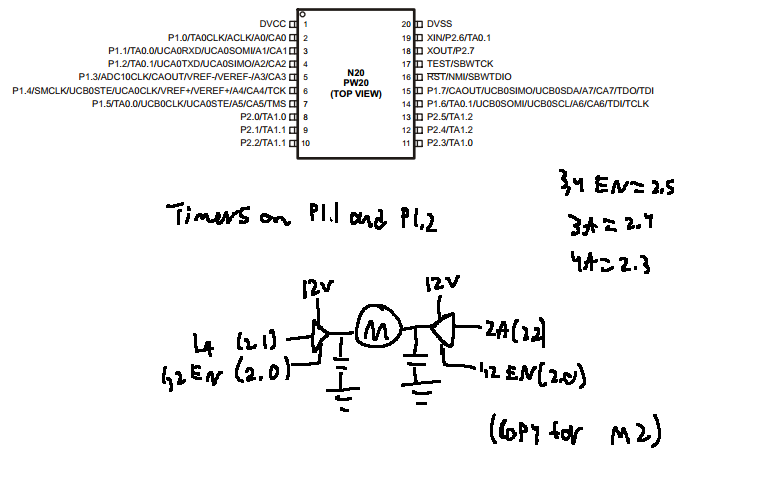 DVCC 1
P1.0/TA0CLK/ACLK/A0/CA0 2
P1.1/TA0.0/UCA0RXD/UCA0SOMI/A1/CA1 3
P1.2/TA0.1/UCA0TXD/UCA0SIMO/A2/CA2 4
P1.3/ADC10CLK/CAOUT/VREF-/VEREF-/A3/CA3 5
P1.4/SMCLK/UCB0STE/UCA0CLK/VREF+/VEREF+/A4/CA4/TCK 6
P1.5/TA0.0/UCB0CLK/UCA0STE/A5/CA5/TMS 7
P2.0/TA1.0 8
P2.1/TA1.1 9
P2.2/TA1.1 10
N20
PW20
(TOP VIEW)
20 DVSS
19 XIN/P2.6/TA0.1
18 XOUT/P2.7
17 TEST/SBWTCK
16 RST/NMI/SBWTDIO
15 P1.7/CAOUT/UCB0SIMO/UCB0SDA/A7/CA7/TDO/TDI
14 P1.6/TA0.1/UCB0SOMI/UCB0SCL/A6/CA6/TDI/TCLK
13 P2.5/TA1.2
12 P2.4/TA1.2
11 P2.3/TA1.0
3,4 EN=2.5
3A=2.4
4A=2.3
Timers on P1.1 and P1.2
12V
12V
M
(2.1)
1,2 EN (2.0)
2A(2.2)
1,2 EN(2.0)
(COPY for M2)